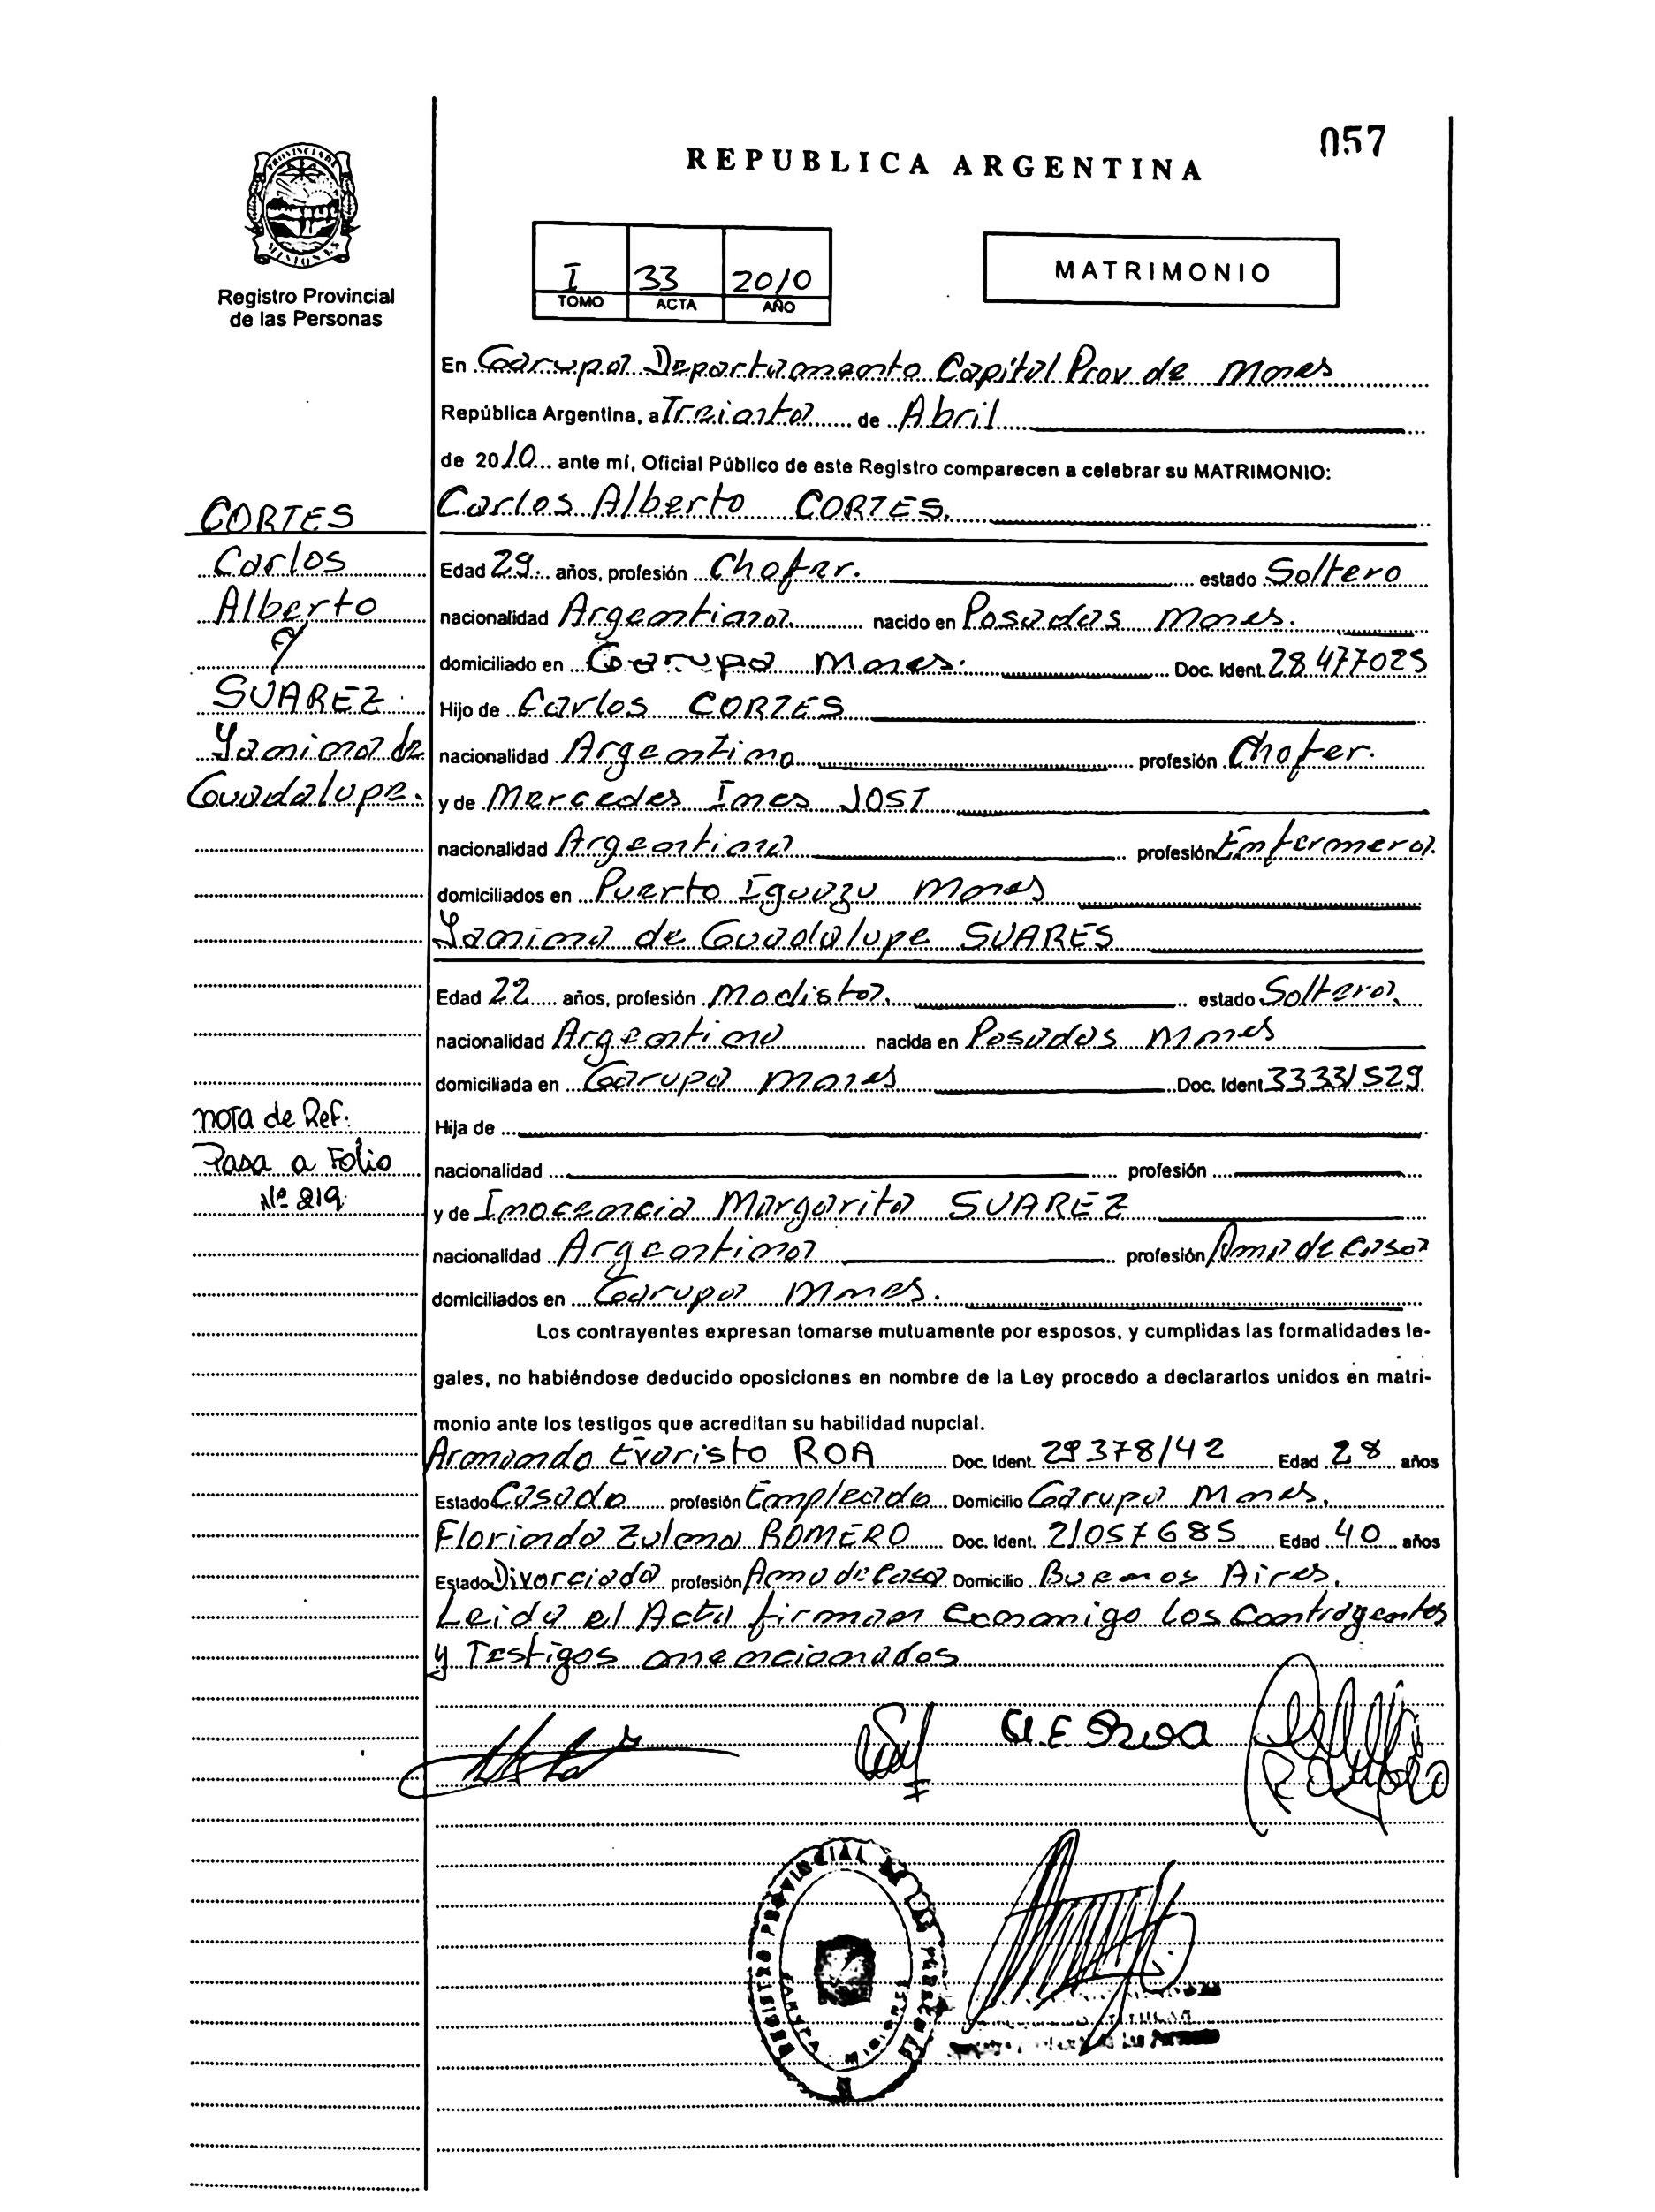 057
REPUBLICA ARGENTINA
PROVINCIA DE
MISIONES
Registro Provincial
de las Personas
I 33 2010
TOMO ACTA AÑO
MATRIMONIO
En Garupa Departamento Capital Prov. de Mnes
República Argentina, a Treinta de Abril
de 2010 ante mí, Oficial Público de este Registro comparecen a celebrar su MATRIMONIO:
CORTES
Carlos
Alberto
y
SUAREZ
Yanina de
Guadalupe.
nota de Ref:
Pasa a Folio
Nº 219
Carlos Alberto CORTES.
Edad 29 años, profesión Chofer. estado Soltero
nacionalidad Argentina nacido en Posadas Mnes.
domiciliado en Garupa Mnes. Doc. Ident. 28.477025
Hijo de Carlos CORTES
nacionalidad Argentino profesión Chofer.
y de Mercedes Ines JOST
nacionalidad Argentina profesión Enfermera.
domiciliados en Puerto Iguazu Mnes
Yanina de Guadalupe SUARES
Edad 22 años, profesión Modista. estado Soltera.
nacionalidad Argentina nacida en Posadas Mnes
domiciliada en Garupa Mnes Doc. Ident 33331529
Hija de
nacionalidad profesión
y de Inocencia Margarita SUAREZ
nacionalidad Argentina profesión Ama de Casa
domiciliados en Garupa Mnes.
Los contrayentes expresan tomarse mutuamente por esposos, y cumplidas las formalidades le-
gales, no habiéndose deducido oposiciones en nombre de la Ley procedo a declararlos unidos en matri-
monio ante los testigos que acreditan su habilidad nupcial.
Armando Evaristo ROA Doc. Ident. 29378142 Edad 28 años
Estado Casado profesión Empleado Domicilio Garupa Mnes.
Florinda Zulena ROMERO Doc. Ident. 21057685 Edad 40 años
Estado Divorciada profesión Ama de Casa Domicilio Buenos Aires.
Leida el Acta firman conmigo los contrayentes
y Testigos mencionados
REGISTRO PROVINCIAL DE LAS PERSONAS